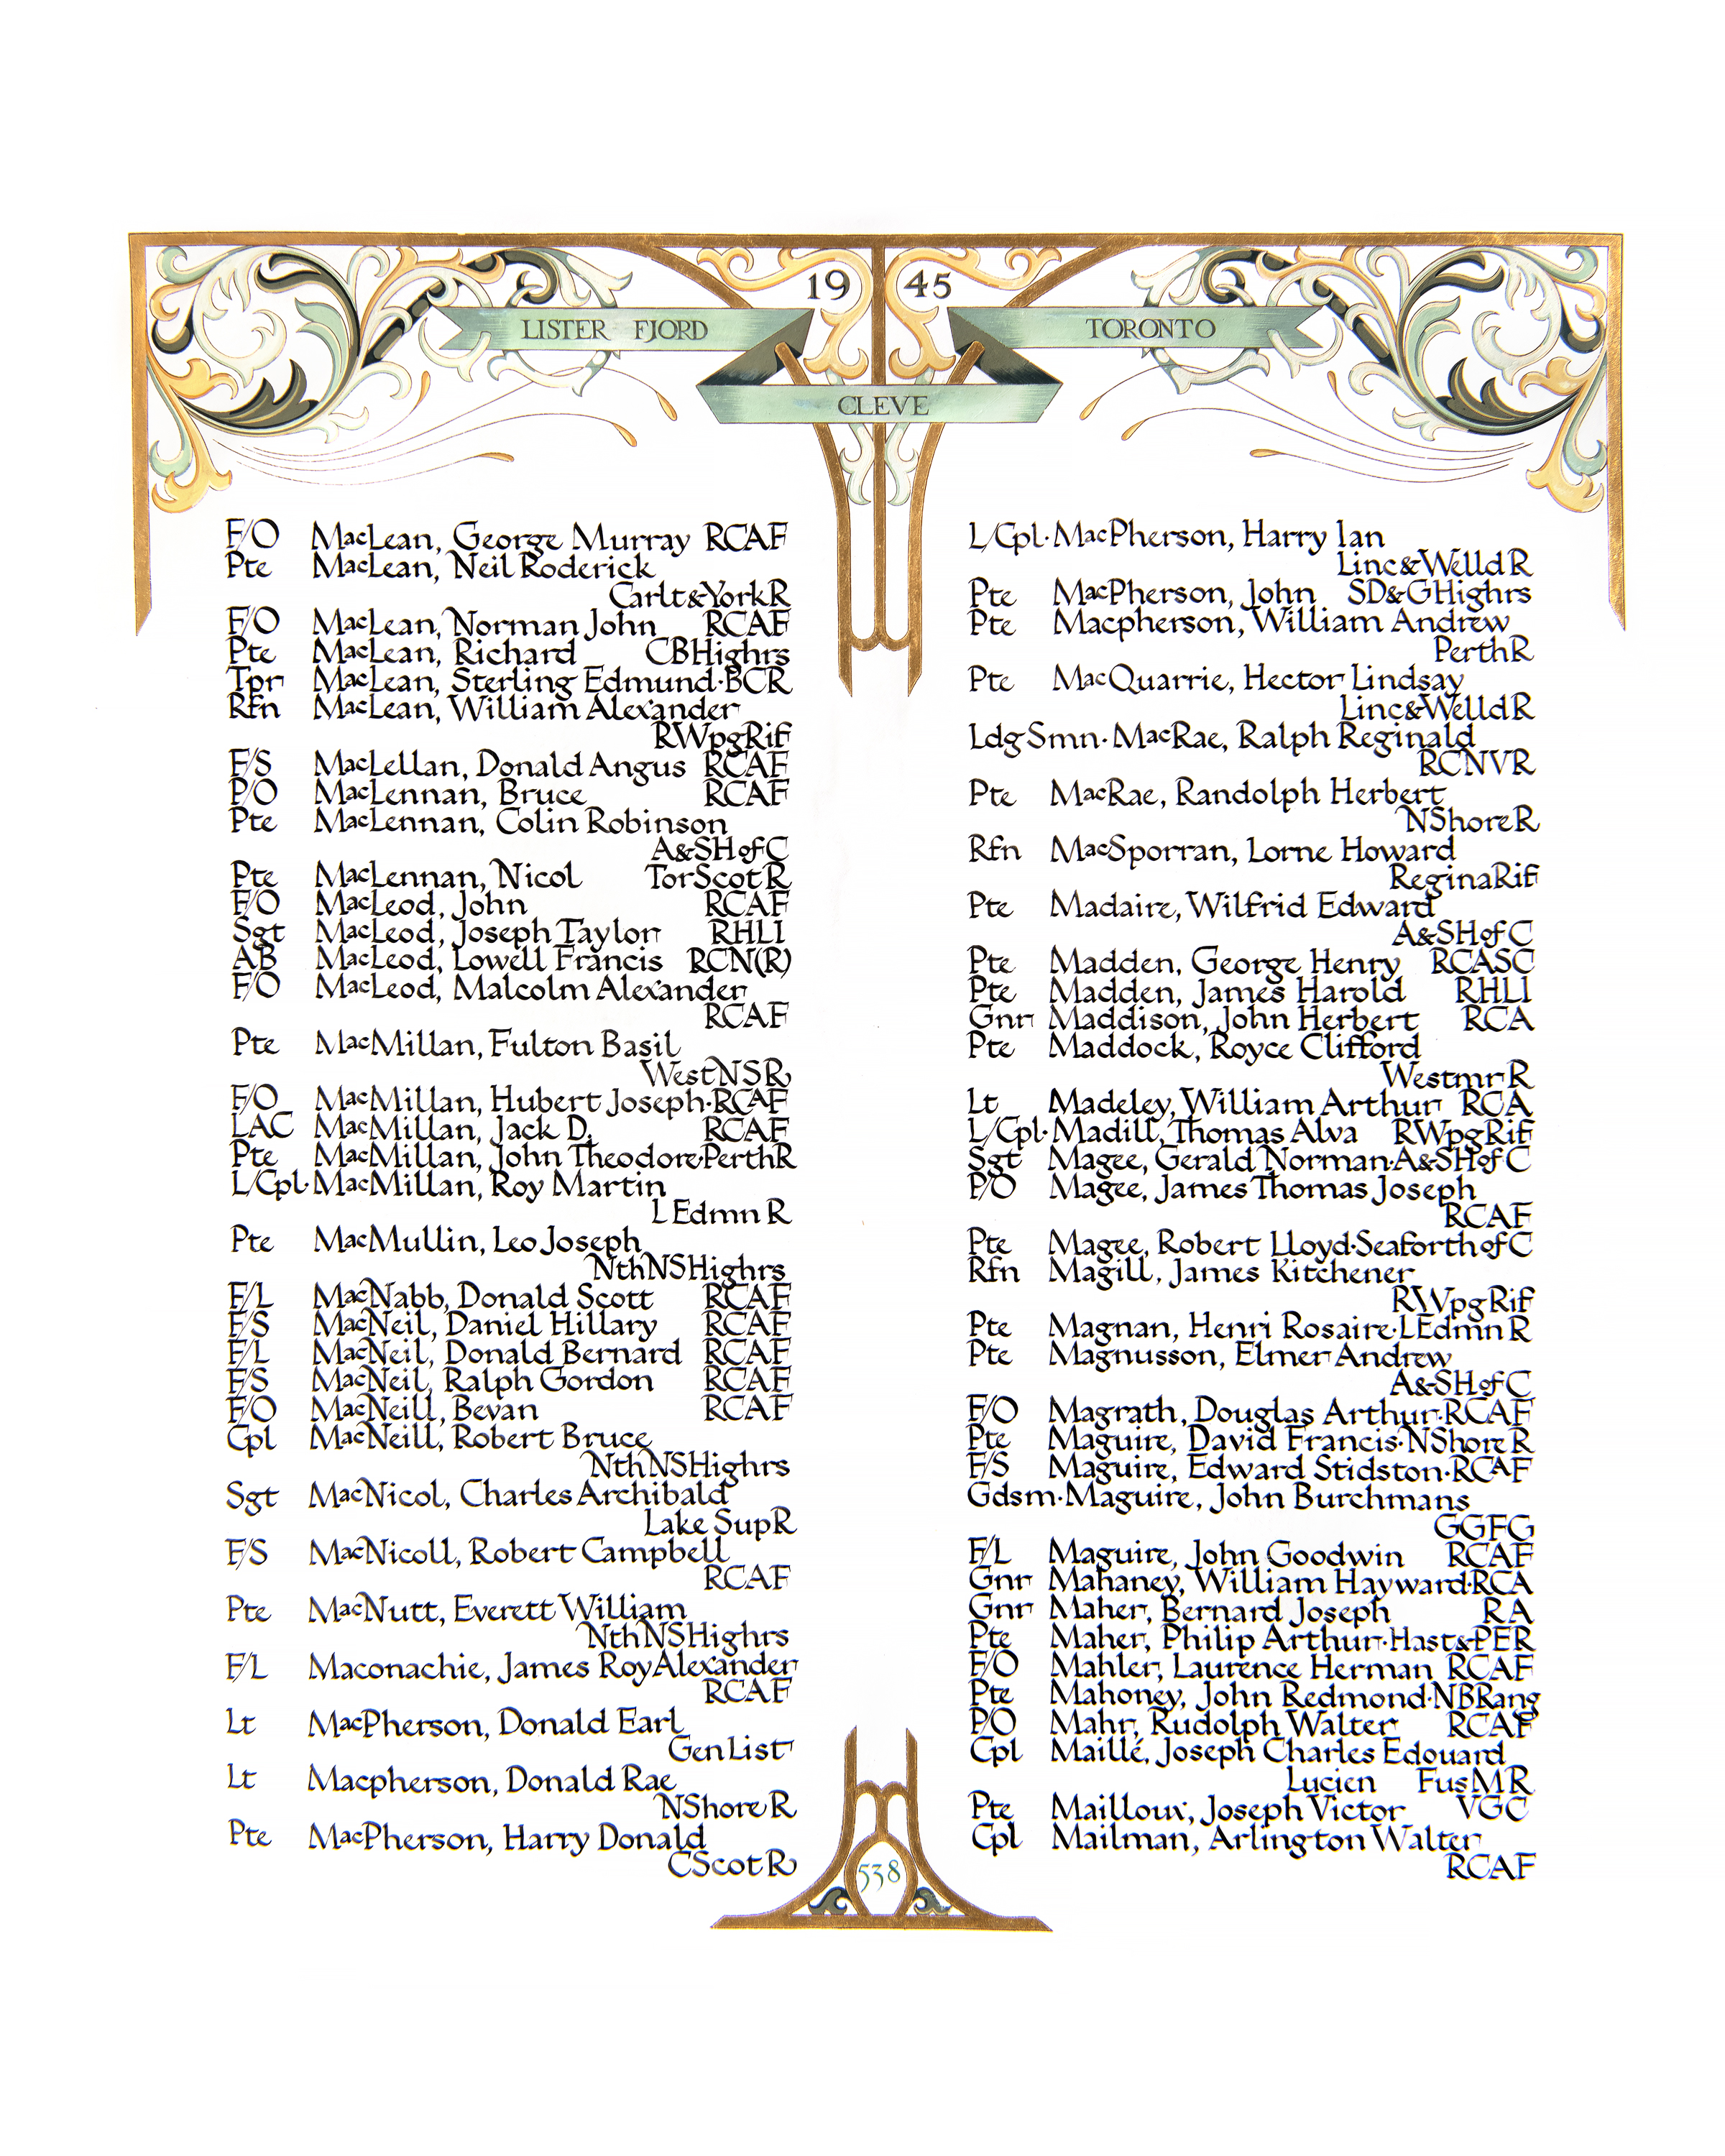 19 45
LISTER FJORD
TORONTO
CLEVE
F/O MacLean, George Murray RCAF
Pte MacLean, Neil Roderick
Carlt&YorkR
F/O MacLean, Norman John RCAF
Pte MacLean, Richard CBHighrs
Tpr MacLean, Sterling Edmund·BCR
Rfn MacLean, William Alexander
RWpgRif
F/S MacLellan, Donald Angus RCAF
P/O MacLennan, Bruce RCAF
Pte MacLennan, Colin Robinson
A&SHofC
Pte MacLennan, Nicol TorScotR
F/O MacLeod, John RCAF
Sgt MacLeod, Joseph Taylor RHLI
AB MacLeod, Lowell Francis RCN(R)
F/O MacLeod, Malcolm Alexander
RCAF
Pte MacMillan, Fulton Basil
WestNSR
F/O MacMillan, Hubert Joseph·RCAF
LAC MacMillan, Jack D. RCAF
Pte MacMillan, John Theodore·PerthR
L/Cpl·MacMillan, Roy Martin
LEdmnR
Pte MacMullin, Leo Joseph
NthNSHighrs
F/L MacNabb, Donald Scott RCAF
F/S MacNeil, Daniel Hillary RCAF
F/L MacNeil, Donald Bernard RCAF
F/S MacNeil, Ralph Gordon RCAF
F/O MacNeill, Bevan RCAF
Cpl MacNeill, Robert Bruce
NthNSHighrs
Sgt MacNicol, Charles Archibald
Lake SupR
F/S MacNicoll, Robert Campbell
RCAF
Pte MacNutt, Everett William
NthNSHighrs
F/L Maconachie, James Roy Alexander
RCAF
Lt MacPherson, Donald Earl
GenList
Lt Macpherson, Donald Rae
NShoreR
Pte MacPherson, Harry Donald
CScotR
L/Cpl·MacPherson, Harry Ian
Linc&WelldR
Pte MacPherson, John SD&GHighrs
Pte Macpherson, William Andrew
PerthR
Pte MacQuarrie, Hector Lindsay
Linc&WelldR
LdgSmn·MacRae, Ralph Reginald
RCNVR
Pte MacRae, Randolph Herbert
NShoreR
Rfn MacSporran, Lorne Howard
ReginaRif
Pte Madaire, Wilfrid Edward
A&SHofC
Pte Madden, George Henry RCASC
Pte Madden, James Harold RHLI
Gnr Maddison, John Herbert RCA
Pte Maddock, Royce Clifford
WestmrR
Lt Madeley, William Arthur RCA
L/Cpl·Madill, Thomas Alva RWpgRif
Sgt Magee, Gerald Norman·A&SHofC
P/O Magee, James Thomas Joseph
RCAF
Pte Magee, Robert Lloyd·SeaforthofC
Rfn Magill, James Kitchener
RWpgRif
Pte Magnan, Henri Rosaire·LEdmnR
Pte Magnusson, Elmer Andrew
A&SHofC
F/O Magrath, Douglas Arthur·RCAF
Pte Maguire, David Francis·NShoreR
F/S Maguire, Edward Stidston·RCAF
Gdsm·Maguire, John Burchmans
GGFG
F/L Maguire, John Goodwin RCAF
Gnr Mahaney, William Hayward·RCA
Gnr Maher, Bernard Joseph RA
Pte Maher, Philip Arthur·Hast&PER
F/O Mahler, Laurence Herman RCAF
Pte Mahoney, John Redmond·NBRang
P/O Mahr, Rudolph Walter RCAF
Cpl Maillé, Joseph Charles Edouard
Lucien FusMR
Pte Mailloux, Joseph Victor VGC
Cpl Mailman, Arlington Walter
RCAF
538